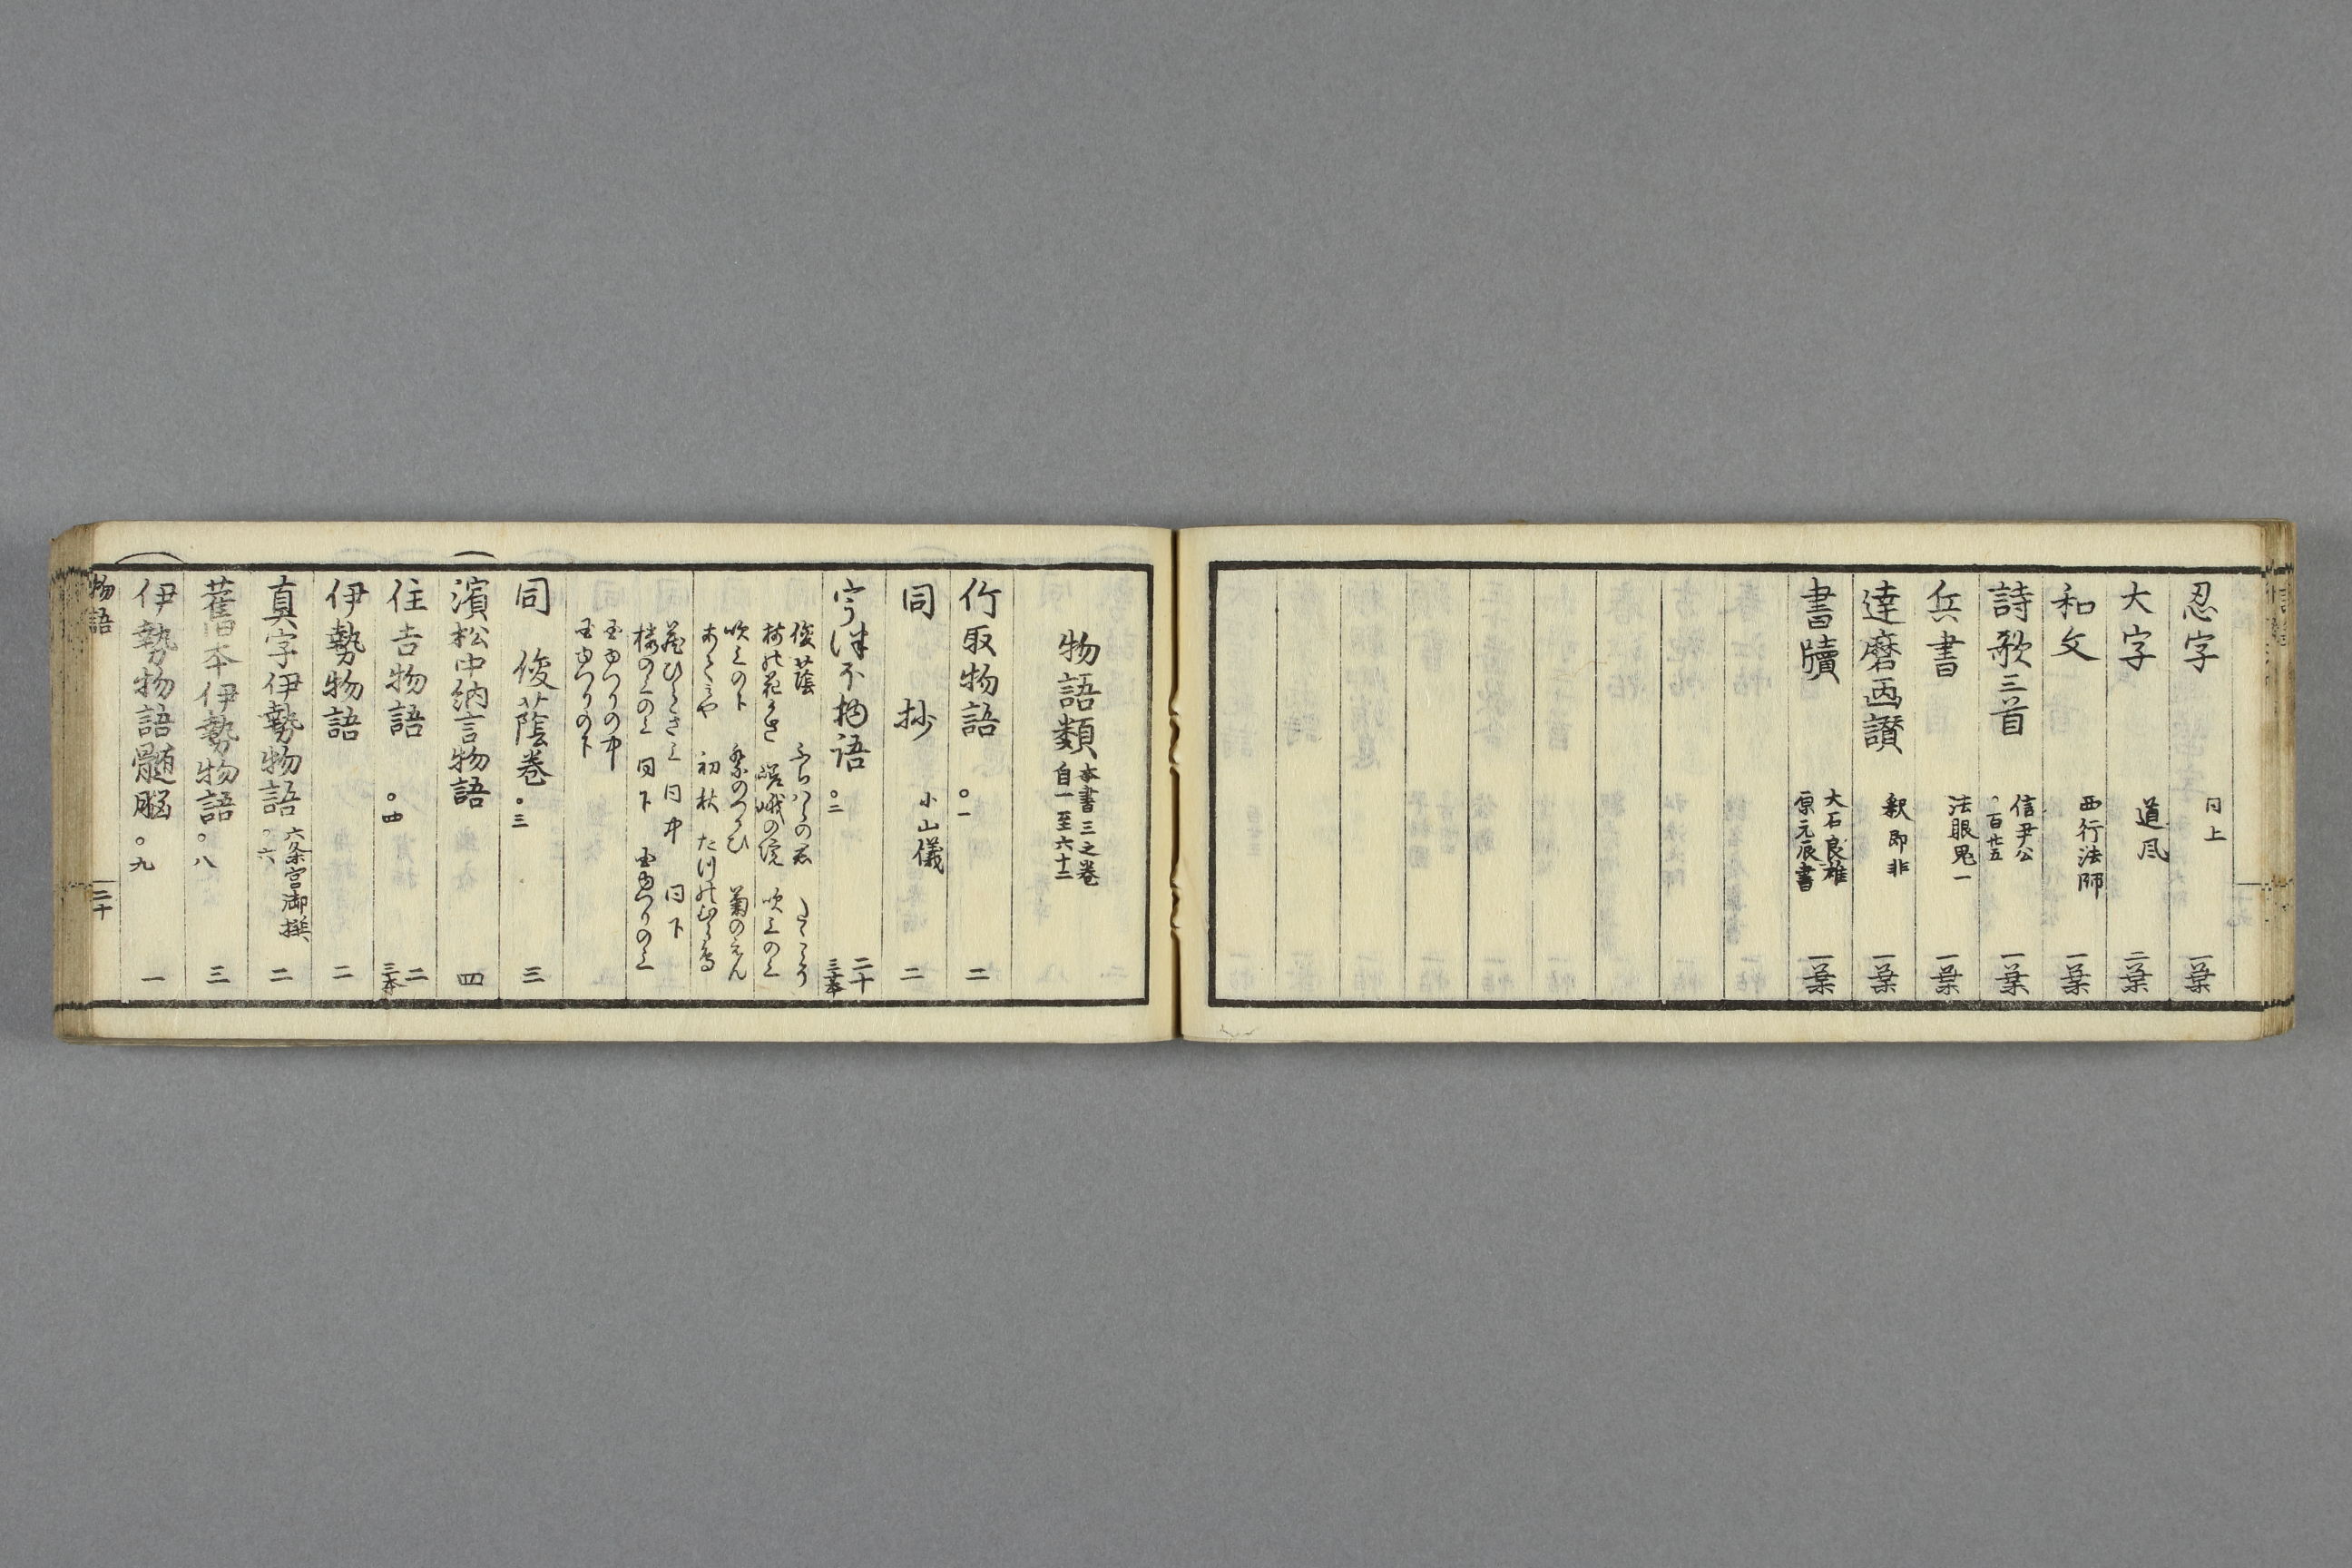 忍字 同上 一葉
大字 道風 二葉
和文 西行法師 一葉
詩歌三首 信尹公 。百廿五 一葉
兵書 法眼鬼一 一葉
達磨画讃 釈即非 一葉
書牘 大石良雄 原元辰書 一葉
物語類 本書三之巻 自一至六十二
竹取物語 。一 二
同 抄 小山儀 二
宇津不物語 。二 二十 三十本
俊蔭 ふちはらの君 たゝこそ
梅の花かさ 嵯峨の院 吹上の上
吹上の下 祭のつかひ 菊のえん
あてみや 初秋 たつの村鳥
蔵ひらき上 同中 同下
楼の上の上 同下 国ゆつりの上
国ゆつりの中
国ゆつりの下
同 俊蔭巻 。三 三
濱松中納言物語 四
住吉物語 。四 二 三本
伊勢物語 二
真字伊勢物語 。六 六条宮御撰 二
舊本伊勢物語 。八 三
伊勢物語髄脳 。九 一
物語 二十